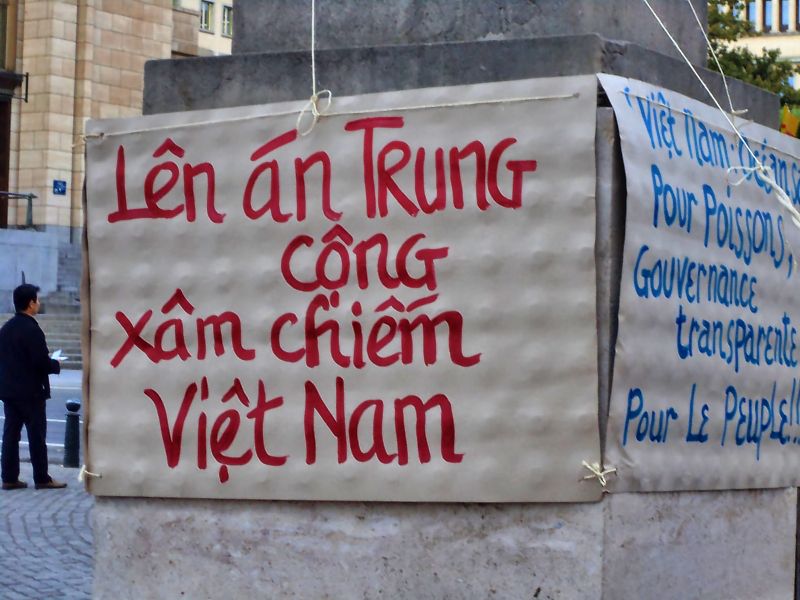 Lên án Trung
cộng
xâm chiếm
Việt Nam
Việt Nam: océan
Pour Poissons,
Gouvernance
transparente
Pour Le Peuple!!